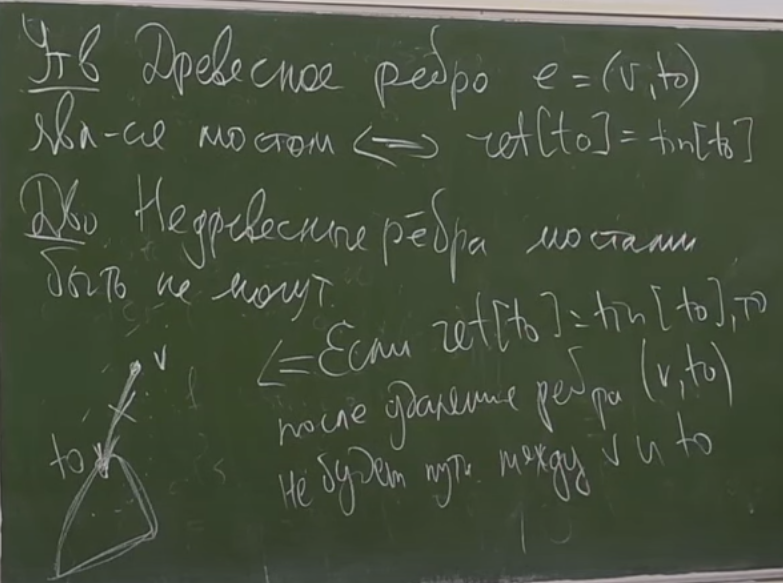 Утв Древесное ребро e = (v, to)
явл-ся мостом <=> ret[to] = tin[to]
Д-во Недревесные рёбра мостами
быть не могут.
<= Если ret[to] = tin[to], то
после удаления ребра (v, to)
не будет пути между v и to
v
to